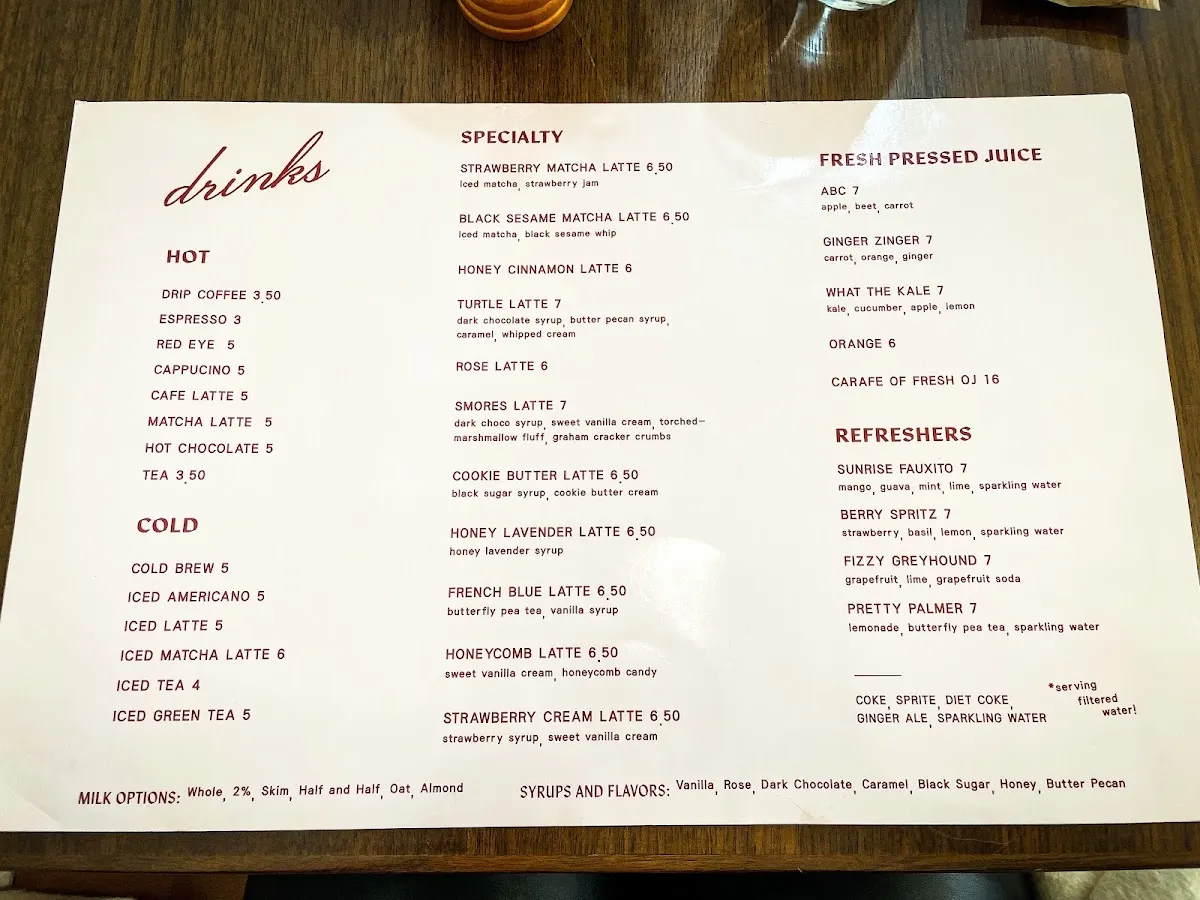 drinks
HOT
DRIP COFFEE 3.50
ESPRESSO 3
RED EYE 5
CAPPUCINO 5
CAFE LATTE 5
MATCHA LATTE 5
HOT CHOCOLATE 5
TEA 3.50
COLD
COLD BREW 5
ICED AMERICANO 5
ICED LATTE 5
ICED MATCHA LATTE 6
ICED TEA 4
ICED GREEN TEA 5
SPECIALTY
STRAWBERRY MATCHA LATTE 6.50
Iced matcha, strawberry jam
BLACK SESAME MATCHA LATTE 6.50
Iced matcha, black sesame whip
HONEY CINNAMON LATTE 6
TURTLE LATTE 7
dark chocolate syrup, butter pecan syrup,
caramel, whipped cream
ROSE LATTE 6
SMORES LATTE 7
dark choco syrup, sweet vanilla cream, torched-
marshmallow fluff, graham cracker crumbs
COOKIE BUTTER LATTE 6.50
black sugar syrup, cookie butter cream
HONEY LAVENDER LATTE 6.50
honey lavender syrup
FRENCH BLUE LATTE 6.50
butterfly pea tea, vanilla syrup
HONEYCOMB LATTE 6.50
sweet vanilla cream, honeycomb candy
STRAWBERRY CREAM LATTE 6.50
strawberry syrup, sweet vanilla cream
FRESH PRESSED JUICE
ABC 7
apple, beet, carrot
GINGER ZINGER 7
carrot, orange, ginger
WHAT THE KALE 7
kale, cucumber, apple, lemon
ORANGE 6
CARAFE OF FRESH OJ 16
REFRESHERS
SUNRISE FAUXITO 7
mango, guava, mint, lime, sparkling water
BERRY SPRITZ 7
strawberry, basil, lemon, sparkling water
FIZZY GREYHOUND 7
grapefruit, lime, grapefruit soda
PRETTY PALMER 7
lemonade, butterfly pea tea, sparkling water
COKE, SPRITE, DIET COKE,
GINGER ALE, SPARKLING WATER
*serving
filtered
water!
MILK OPTIONS: Whole, 2%, Skim, Half and Half, Oat, Almond
SYRUPS AND FLAVORS: Vanilla, Rose, Dark Chocolate, Caramel, Black Sugar, Honey, Butter Pecan